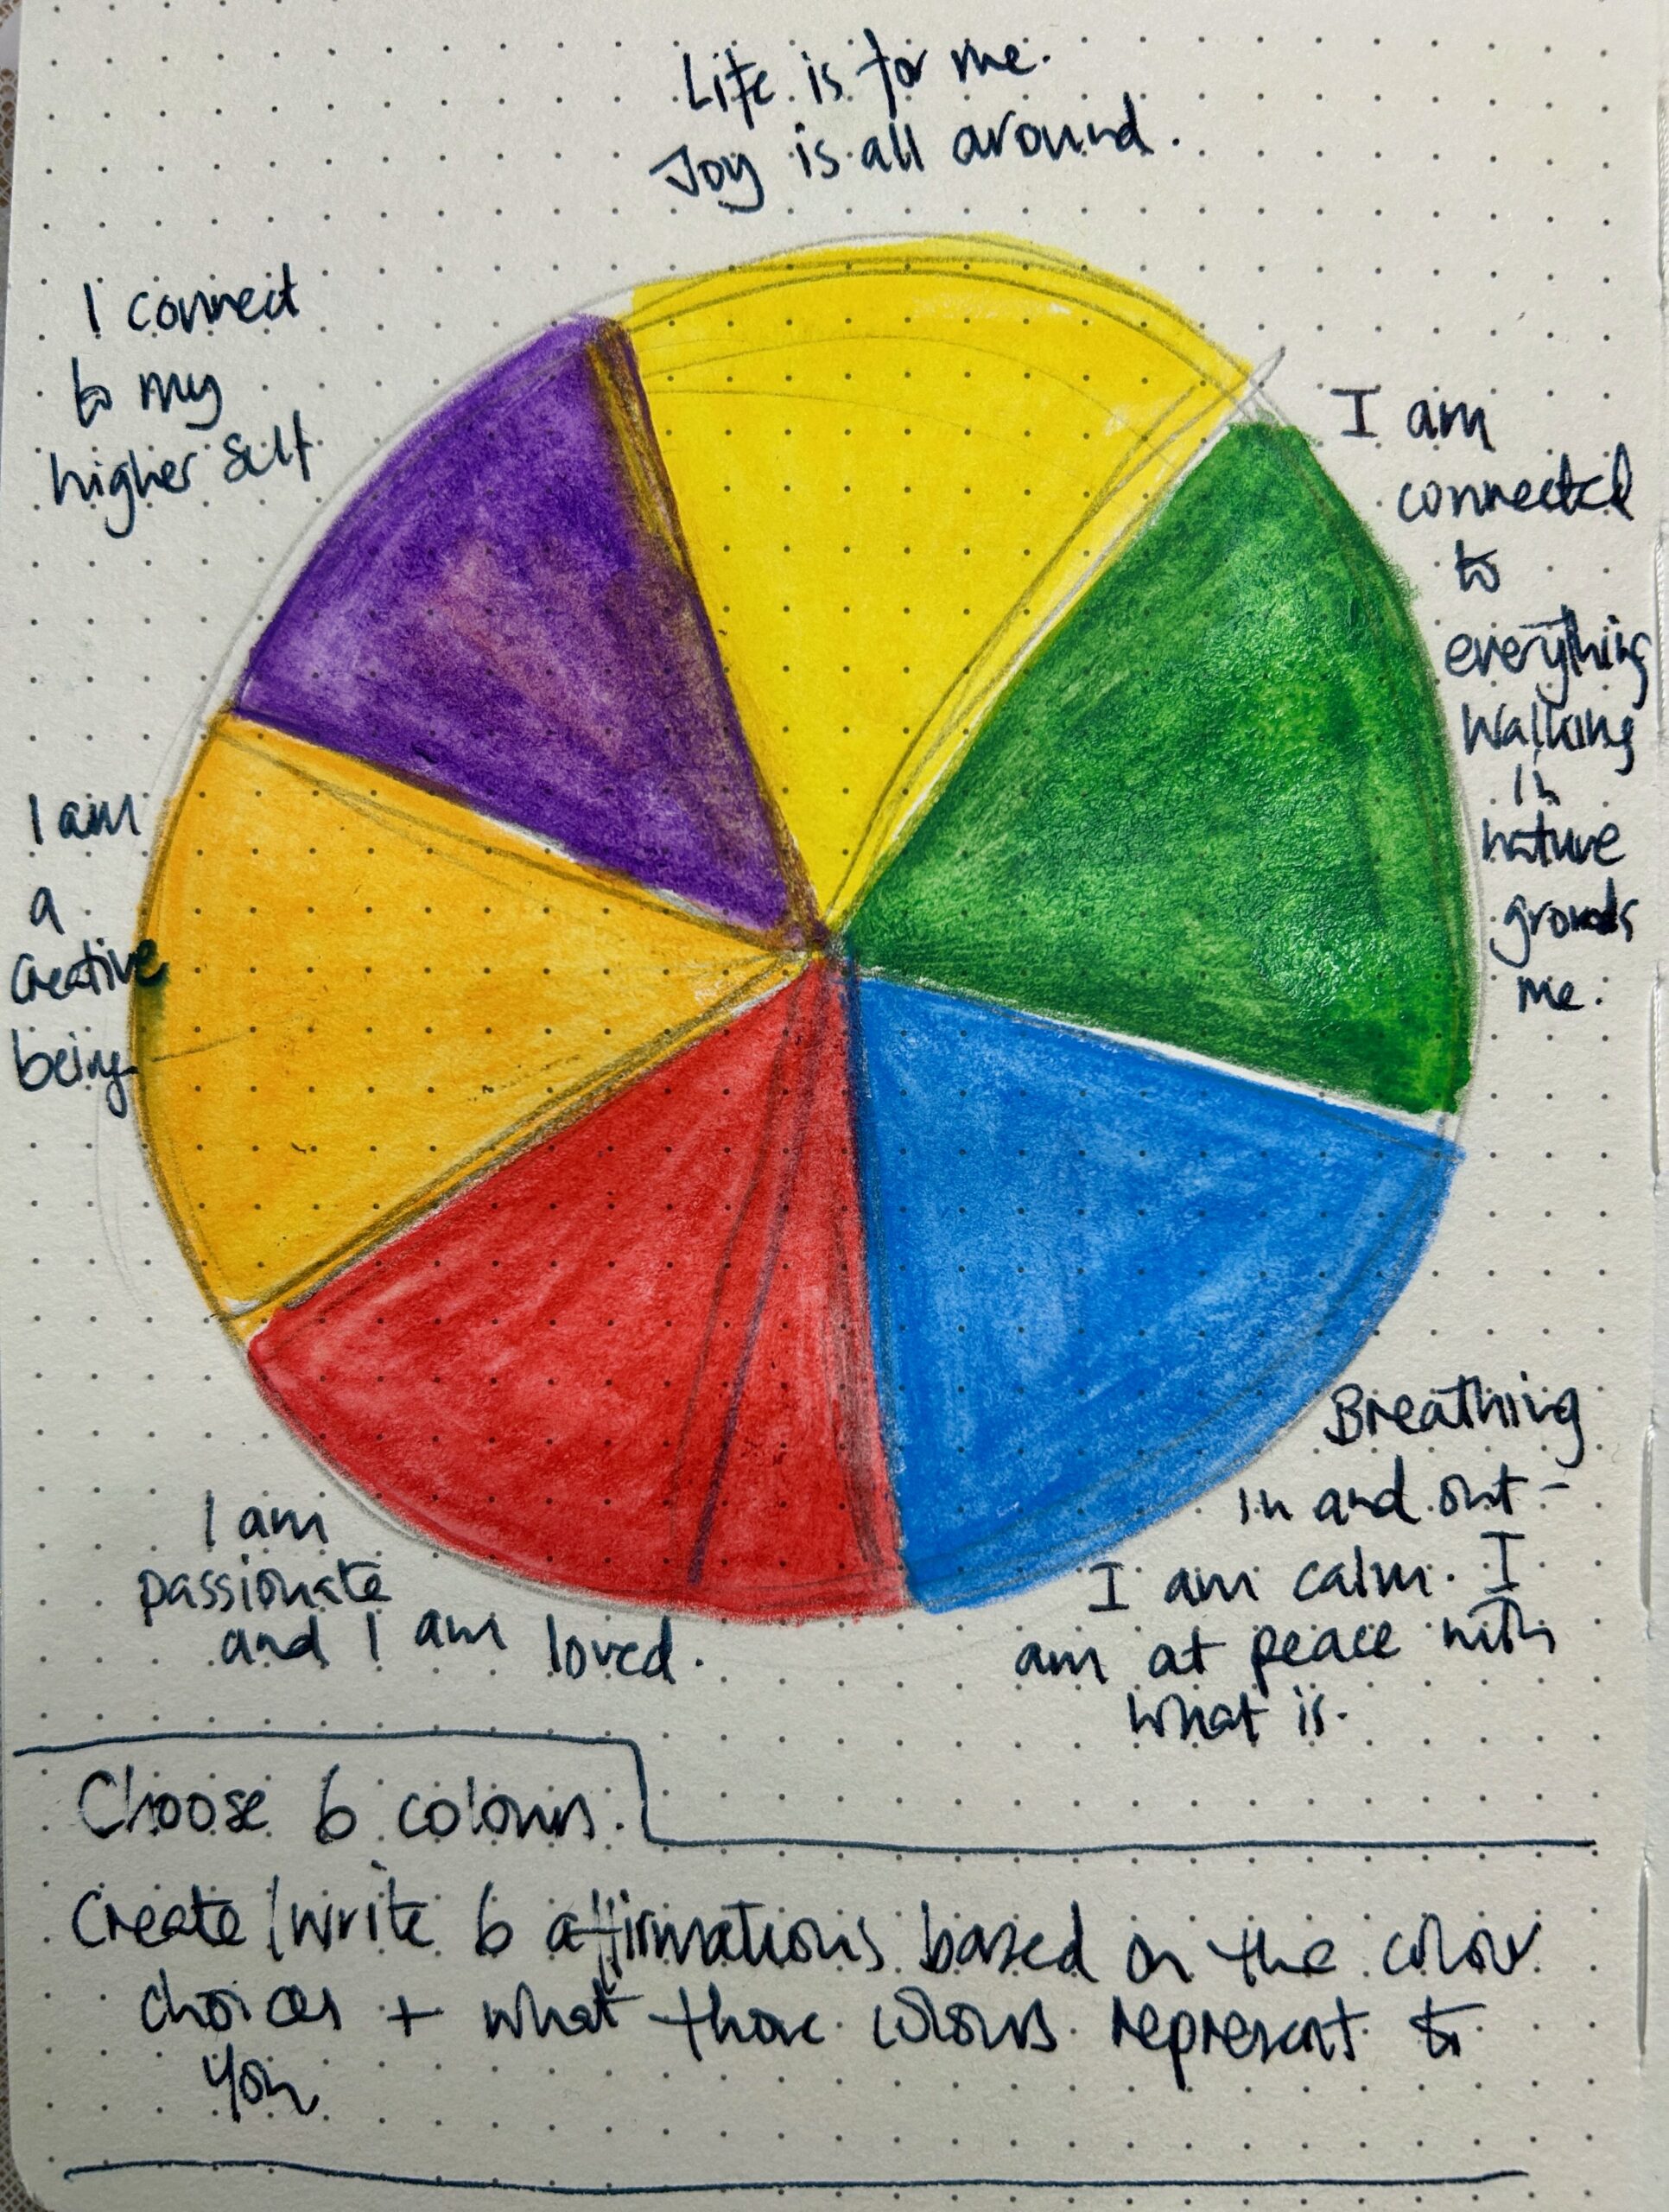 Life is for me.
Joy is all around.
I connect
to my
higher self
I am
connected
to
everything
Walking
in
nature
grounds
me.
I am
a
creative
being
Breathing
in and out -
I am calm. I
am at peace with
what is.
I am
passionate
and I am loved.
Choose 6 colours.
Create/write 6 affirmations based on the colour
choices + what those colours represent to
you